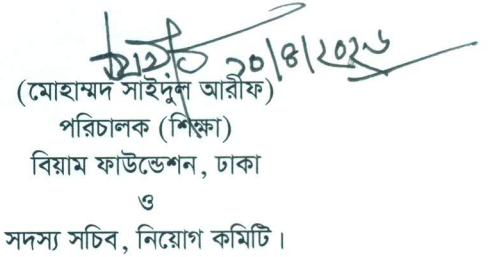 ২০/৪/২০২৬
(মোহাম্মদ সাইদুল আরীফ)
পরিচালক (শিক্ষা)
বিয়াম ফাউন্ডেশন, ঢাকা
ও
সদস্য সচিব, নিয়োগ কমিটি।